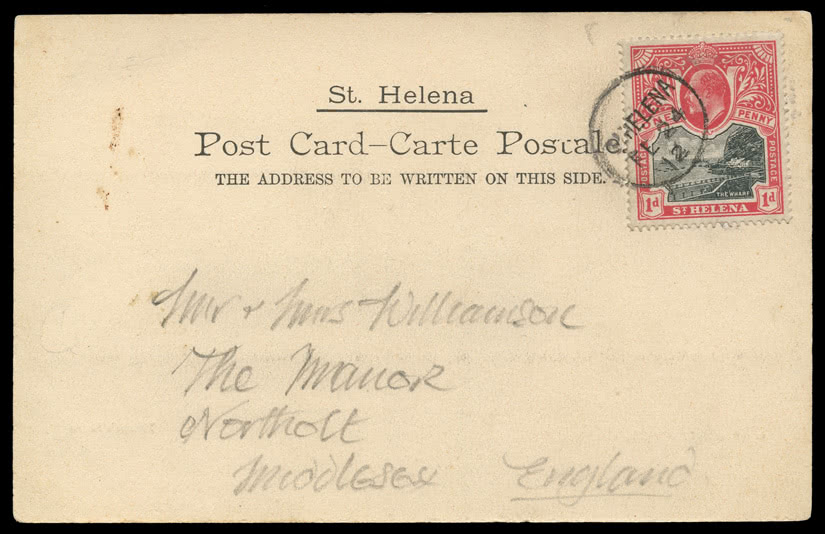 St. Helena
Post Card–Carte Postale.
THE ADDRESS TO BE WRITTEN ON THIS SIDE.
HELENA
24
12
PENNY
POSTAGE
POSTAGE
THE WHARF
1d
ST HELENA
1d
Mr & Mrs Williamson
The Manor
Northolt
Middlesex England